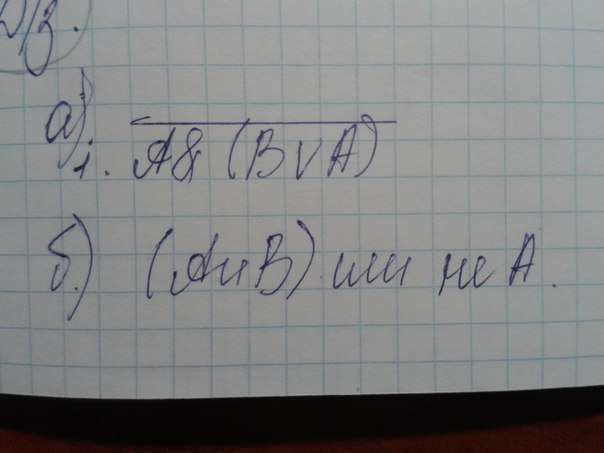 ДЗ.
а)
1. A&(B∨A)
б.) (A и B) или не A.